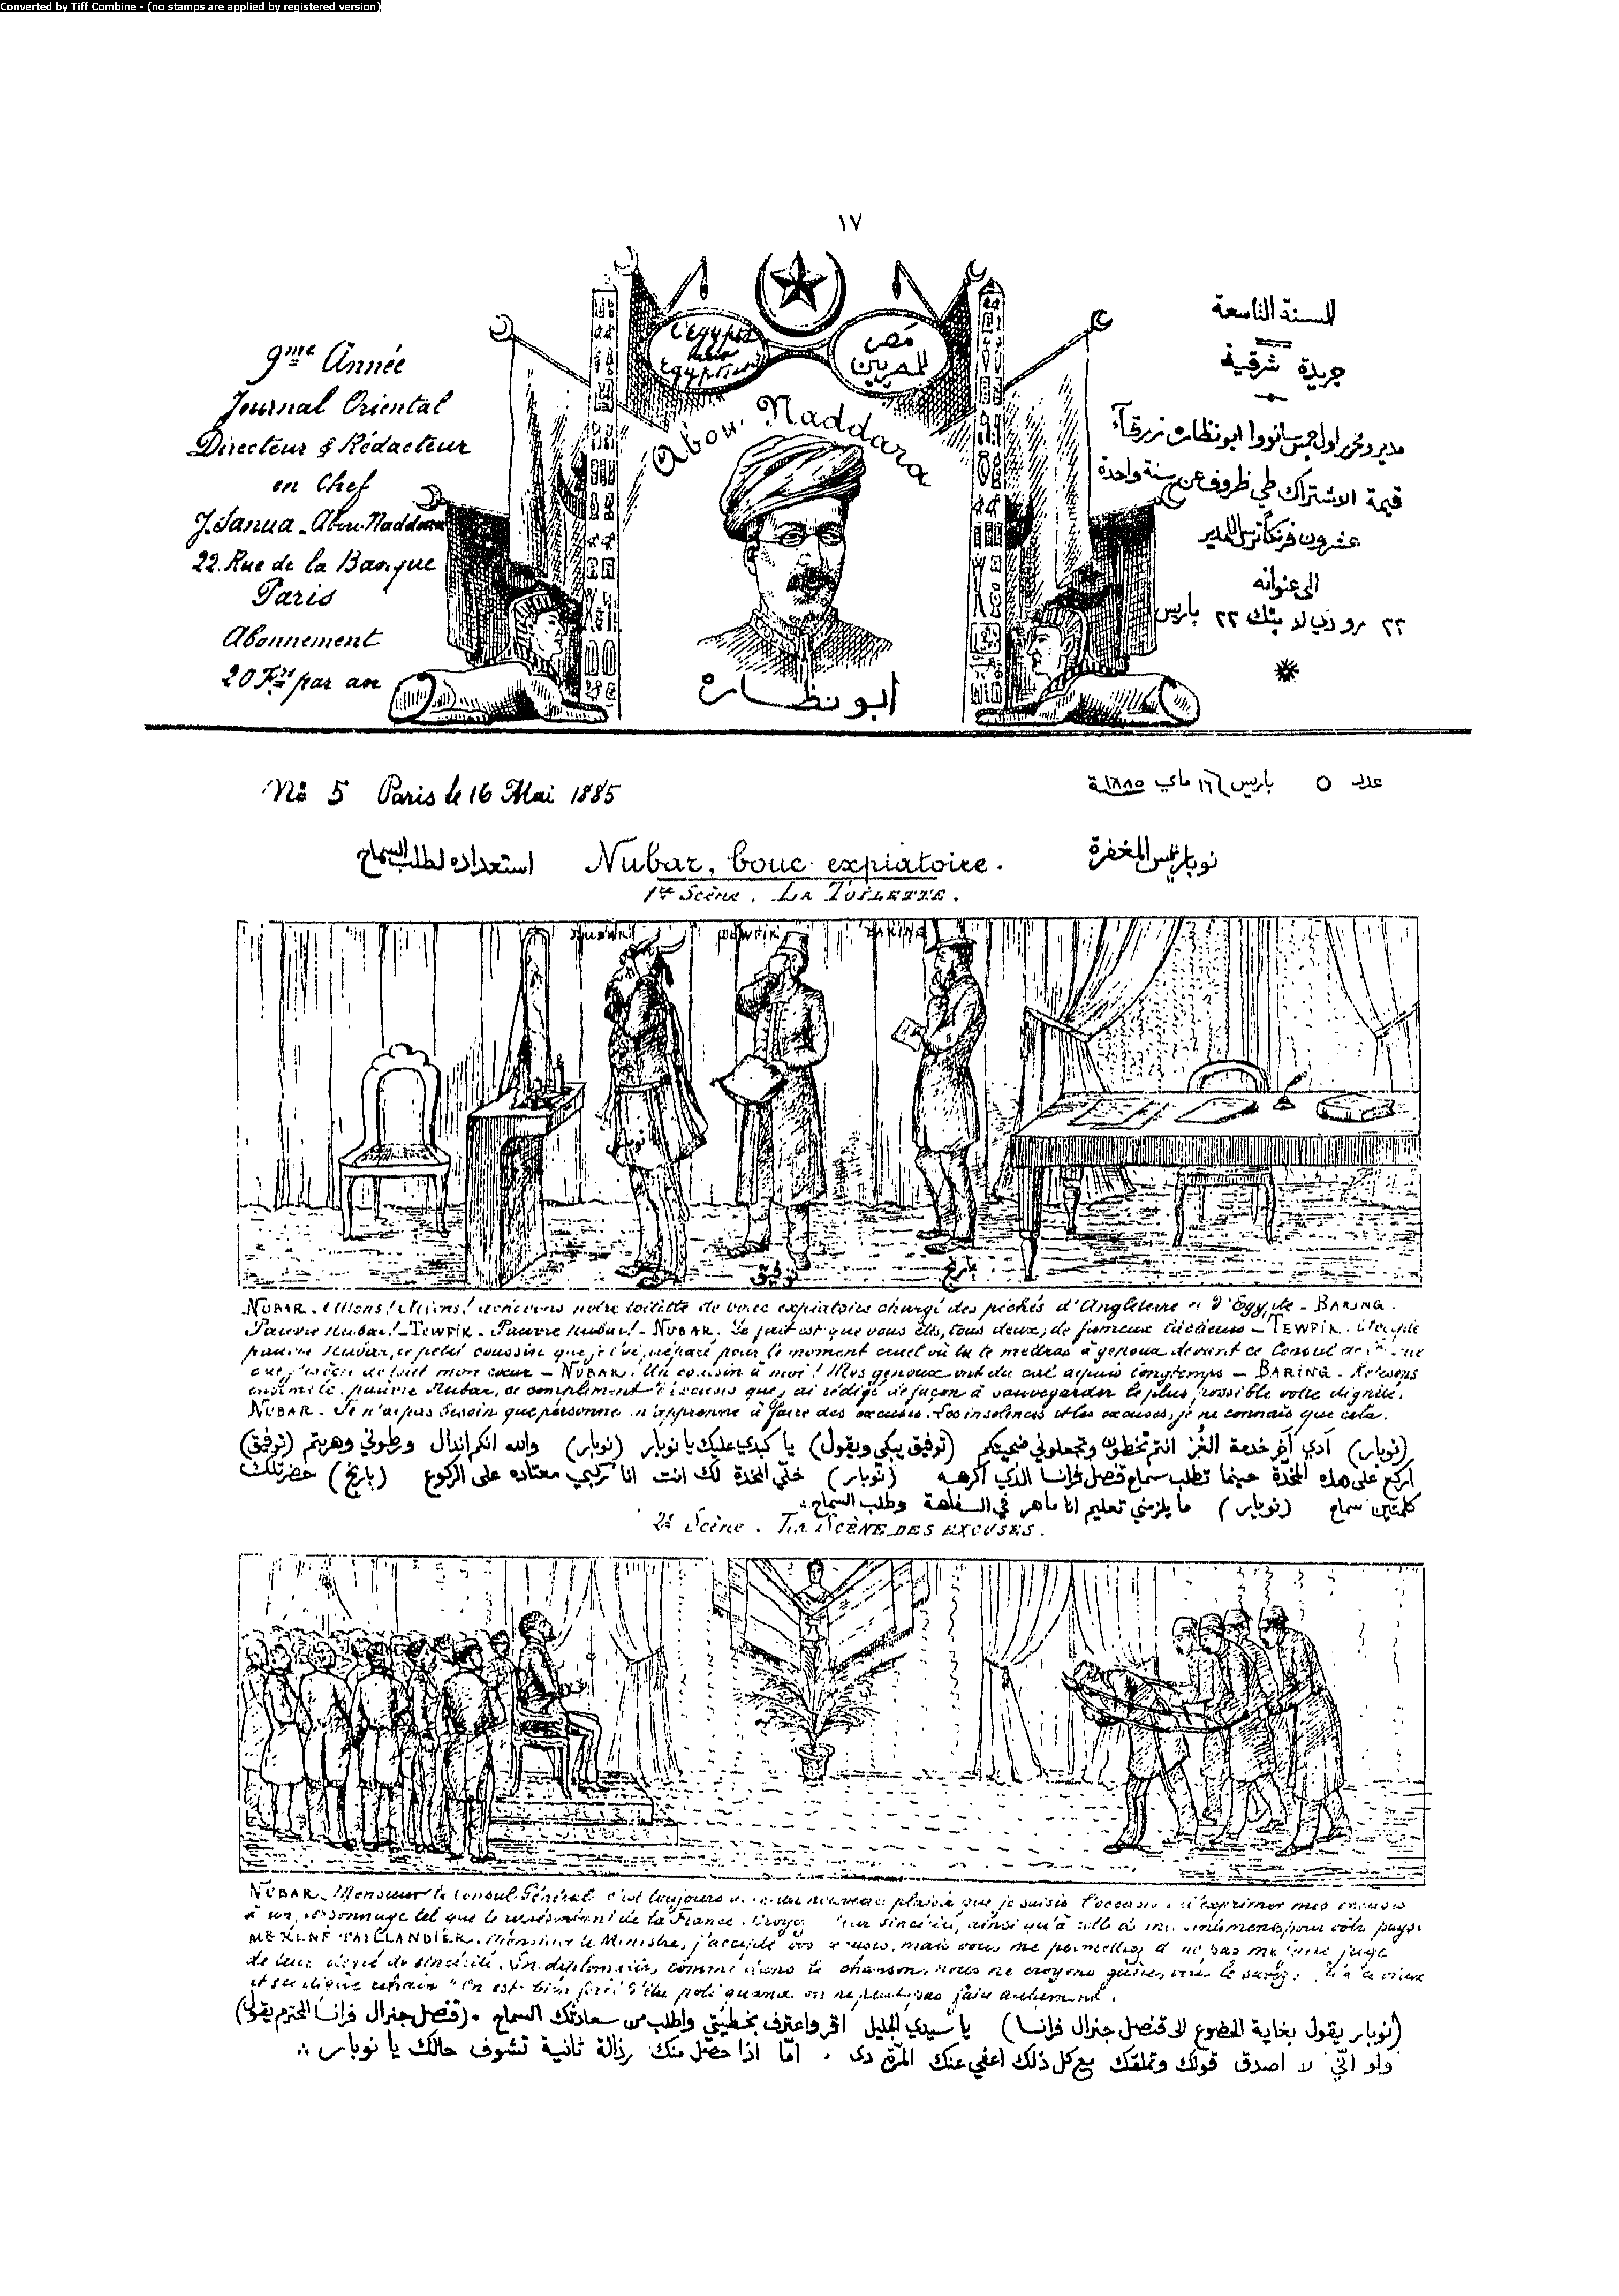 Converted by Tiff Combine - (no stamps are applied by registered version)
١٧
L'Egypte
Egyptiens
مصر
للمصريين
Abou Naddara
ابو نظاره
9me Année
Journal Oriental
Directeur & Rédacteur
en Chef
J. Sanua - Abou Naddara
22. Rue de la Banque
Paris
Abonnement
20 Frs par an
السنة التاسعة
جريدة شرقية
مدير ومحرر اول جمس سانووا ابو نظاره زرقاء
قيمة الاشتراك طي ظروف عن سنة واحدة
عشرون فرنكاً ترسل للمدير
الى عنوانه
٢٢ رو دي لا بنك ٢٢ باريس
No 5 Paris le 16 Mai 1885
عدد ٥ باريس ١٦ ماي سنة ١٨٨٥
نوبار تيس المغفرة
Nubar, bouc expiatoire.
استعداده لطلب السماح
1re Scène. LA TOILETTE.
NUBAR TEWFIK BARING
نوبار
توفيق
بارنج
NUBAR. Allons! Allons! achevons notre toilette de bouc expiatoire chargé des péchés d'Angleterre et d'Egypte - BARING.
Pauvre Nubar! - TEWFIK. Pauvre Nubar! - NUBAR. Le fait est que vous êtes, tous deux, de fameux - TEWFIK.
pauvre Nubar, ce petit coussin que je t'ai préparé pour le moment cruel où tu te mettras à genoux devant ce Consul de
que j'exècre de tout mon cœur - NUBAR. Un coussin à moi! Mes genoux ont du cal depuis longtemps - BARING. Relisons
ensemble, pauvre Nubar, ce compliment d'excuses que j'ai rédigé de façon à sauvegarder le plus possible votre dignité.
NUBAR - Je n'ai pas besoin que personne m'apprenne à faire des excuses. Les insolences et les excuses, je ne connais que cela.
(نوبار) آدي آخر خدمة الغُز انتم تخطئون وتجعلوني ضحيتكم (توفيق يبكي ويقول) يا كبدي عليك يا نوبار (نوبار) والله انكم اندال ورطوني وهربتم (توفيق)
اركع على هذه المخدّة حينما تطلب سماح قنصل فرانسا الذي اكرهه (نوبار) خلّي المخدة لك انت انا ركبي معتاده على الركوع (بارنج) حضرتلك
كلمتين سماح (نوبار) ما يلزمني تعليم انا ماهر في السفاهة وطلب السماح
2e Scène. LA SCÈNE DES EXCUSES.
NUBAR - Monsieur le Consul Général c'est toujours nouveau plaisir que je saisis l'occasion d'exprimer mes excuses
à un personnage tel que le représentant de la France. Croyez sincérité, ainsi qu'à celle de mes sentiments pour votre pays.
TAILLANDIER. Monsieur le Ministre, j'accepte vos excuses, mais vous me permettrez de ne pas me faire juge
de leur degré de sincérité. En diplomatie, comme dans la chanson, nous ne croyons guère, vous le savez, qu'à ce vieux
et si digne refrain "On est bien forcé d'être poli quand on ne peut pas faire autrement.
(نوبار يقول بغاية الخضوع الى قنصل جنرال فرانسا) يا سيدي الجليل اقر واعترف بخطيئتي واطلب من سعادتك السماح. (قنصل جنرال فرانسا المحترم يقول)
ولو انّي لا اصدق قولك وتملقك مع كل ذلك اعفي عنك المرّة دى. امّا اذا حصل منك رذالة ثانية تشوف حالك يا نوبار